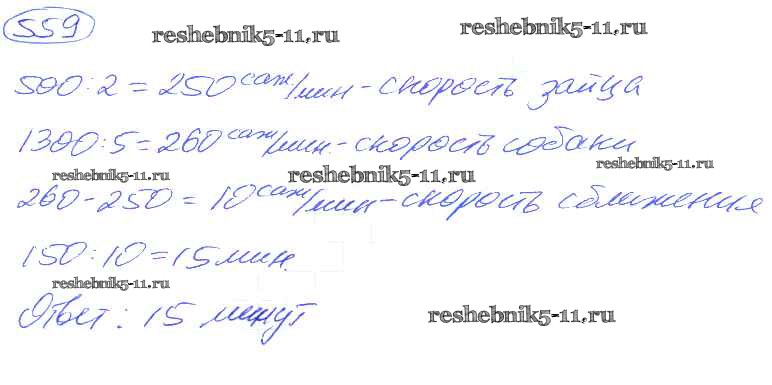 559
reshebnik5-11.ru
reshebnik5-11.ru
500:2=250 саж/мин - скорость зайца
1300:5=260 саж/мин. - скорость собаки
reshebnik5-11.ru
reshebnik5-11.ru
reshebnik5-11.ru
260-250=10 саж/мин - скорость сближения
150:10=15 мин.
reshebnik5-11.ru
Ответ: 15 минут
reshebnik5-11.ru